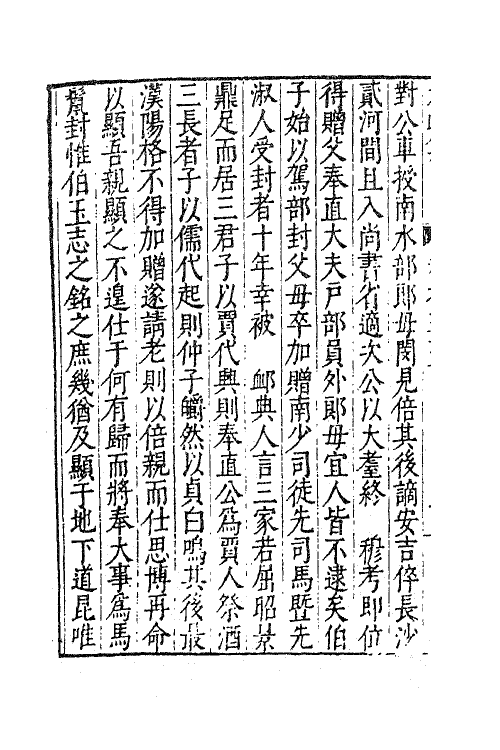 對公車授南水部郎毋閔見倍其後謫安吉倅長沙
貳河間且入尚書省適次公以大耋終　穆考即位
得贈父奉直大夫戶部員外郎毋宜人皆不逮矣伯
子始以駕部封父毋卒加贈南少司徒先司馬暨先
淑人受封者十年幸被　䘏典人言三家若屈昭景
鼎足而居三君子以賈代興則奉直公為賈人祭酒
三長者子以儒代起則仲子皭然以貞白鳴其後最
漢陽格不得加贈遂請老則以倍親而仕思博再命
以顯吾親顯之不遑仕于何有歸而將奉大事為馬
鬛封惟伯玉志之銘之庶幾猶及顯于地下道昆唯